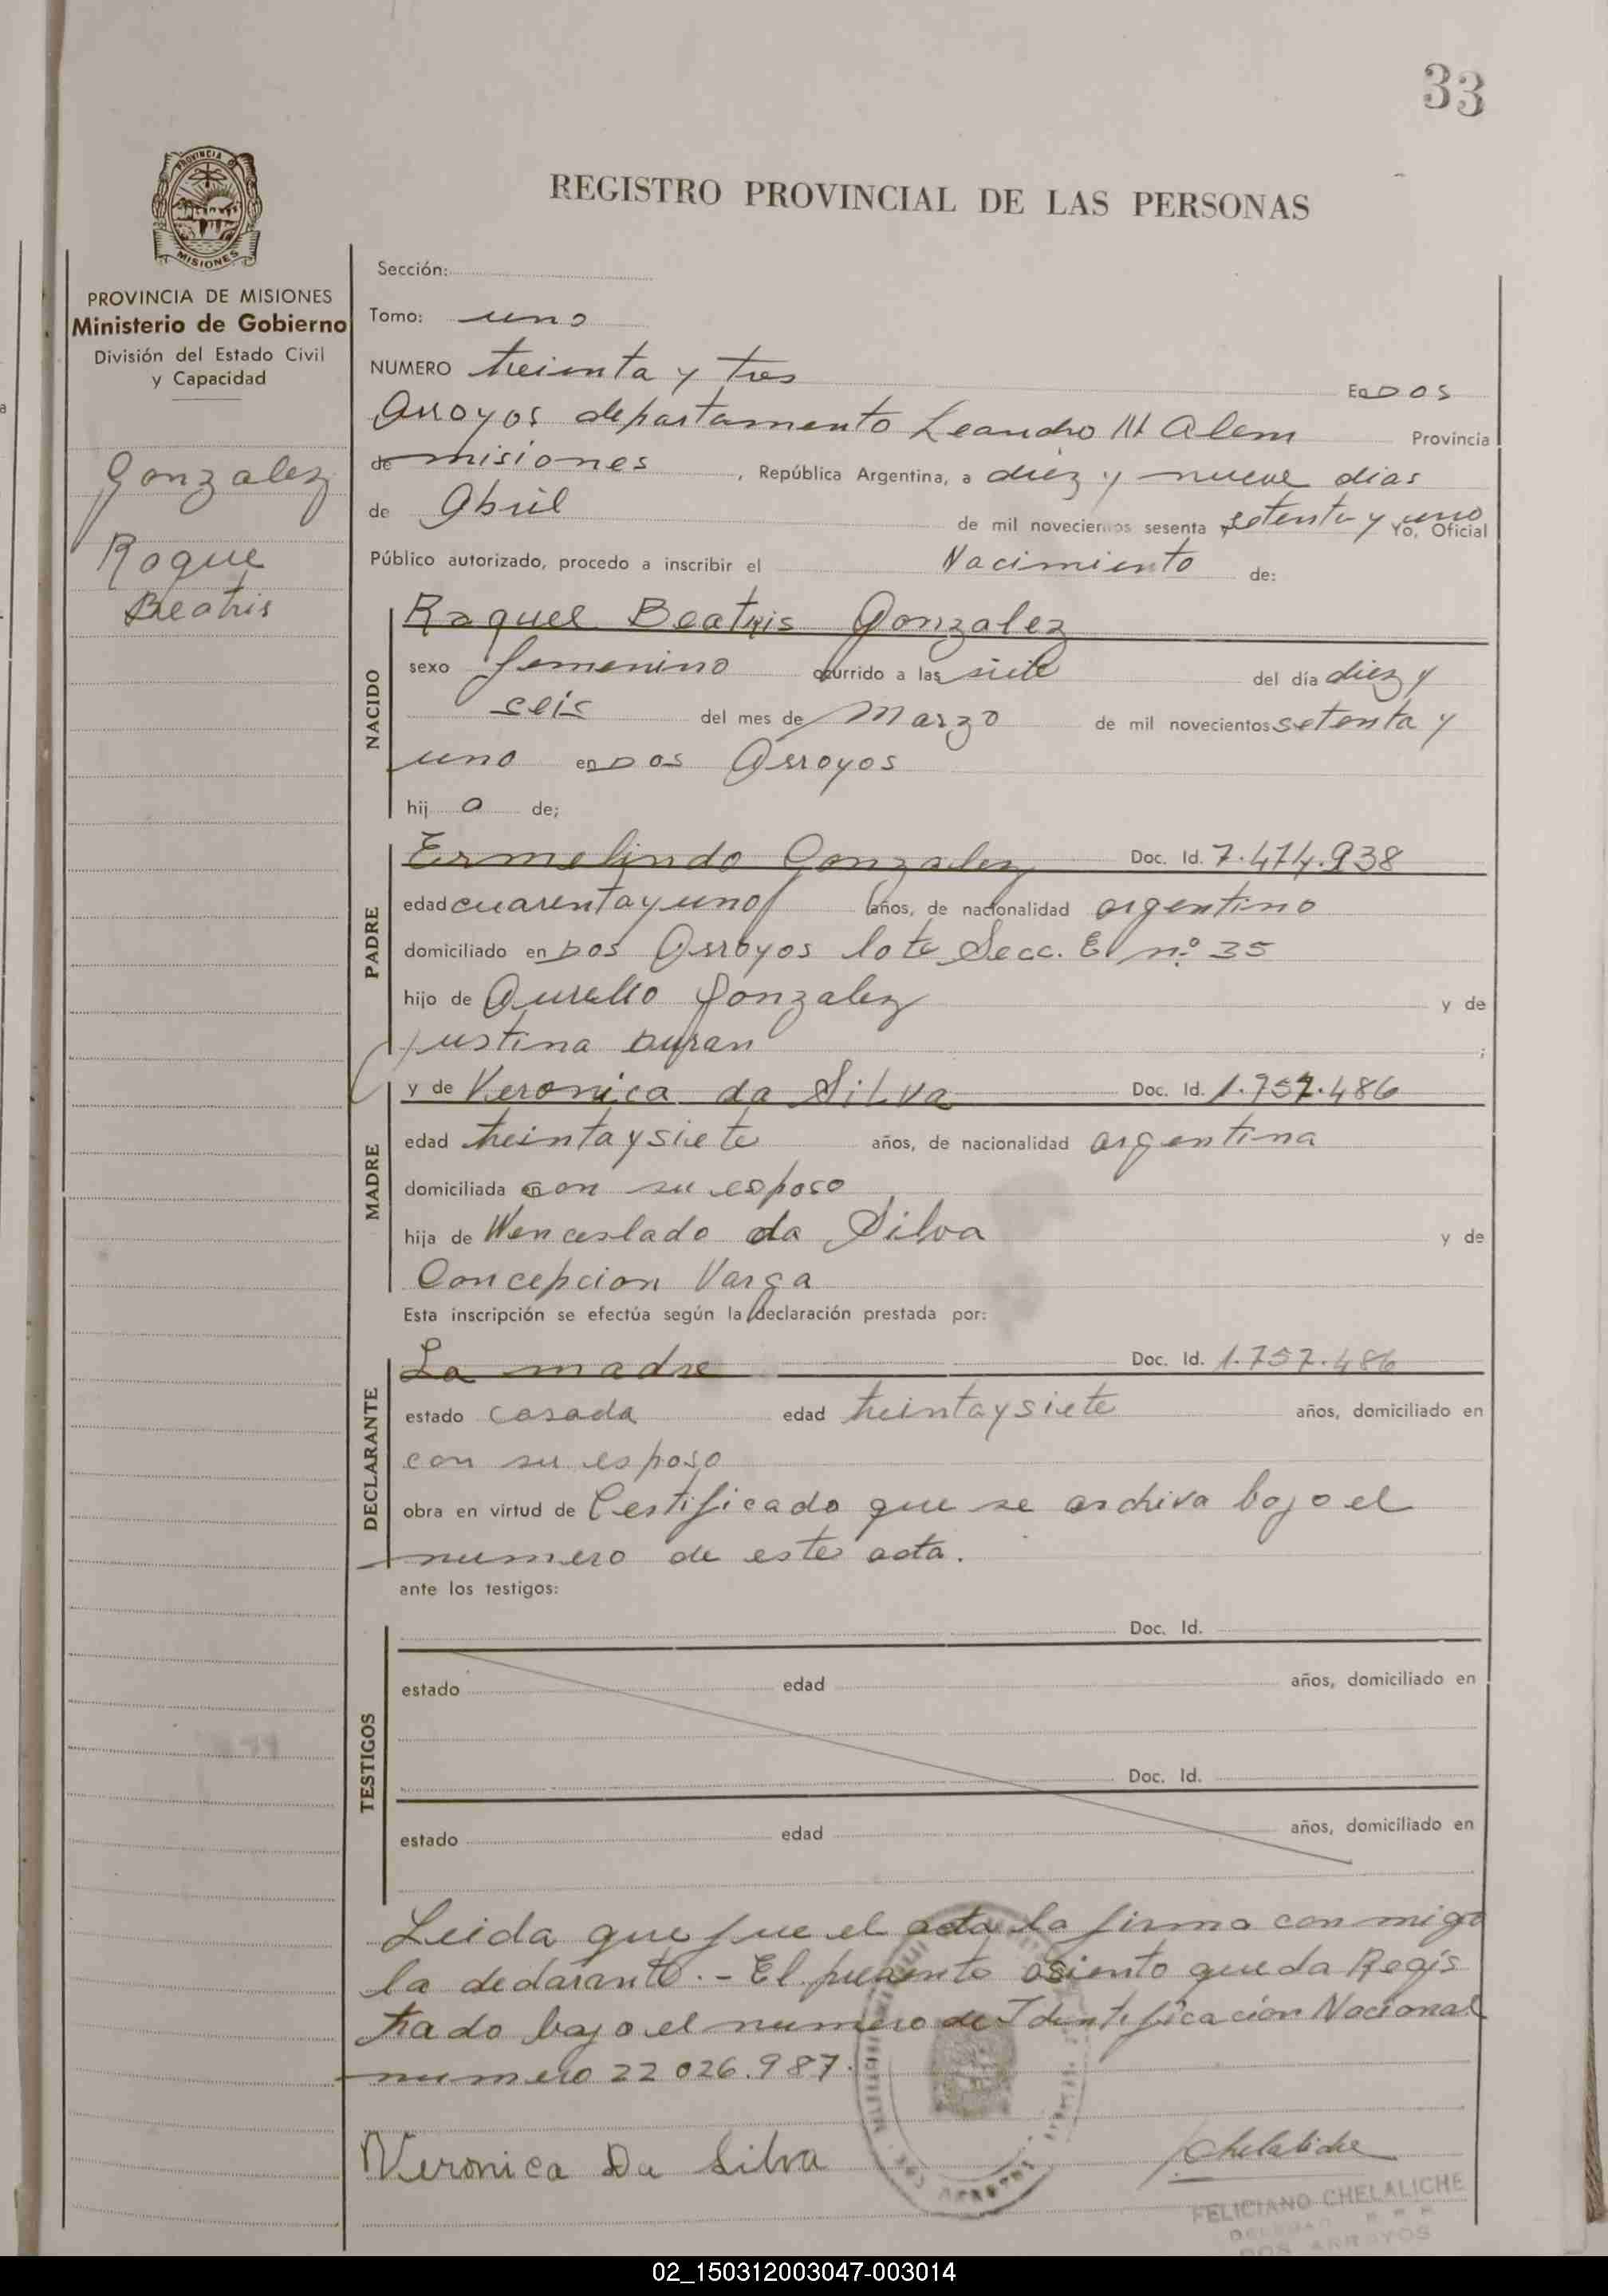 33
PROVINCIA
MISIONES
REGISTRO PROVINCIAL DE LAS PERSONAS
PROVINCIA DE MISIONES
Ministerio de Gobierno
División del Estado Civil
y Capacidad
Gonzalez
Roque
Beatris
Sección:
Tomo: uno
NUMERO treinta y tres En Dos
Arroyos departamento Leandro N Alem Provincia
de misiones, República Argentina, a diez y nueve dias
de Abril de mil novecientos sesenta y setenta y uno Yo, Oficial
Público autorizado, procedo a inscribir el Nacimiento de:
NACIDO
Raquel Beatris Gonzalez
sexo femenino ocurrido a las siete del día diez y
seis del mes de Marzo de mil novecientos setenta y
uno en Dos Arroyos
hij a de;
PADRE
Ermelindo Gonzalez Doc. Id. 7.474.938
edad cuarenta y uno años, de nacionalidad argentino
domiciliado en Dos Arroyos lote Secc. E nº 35
hijo de Aurelio Gonzalez y de
Justina Duran ;
MADRE
y de Veronica da Silva Doc. Id. 1.757.486
edad treinta y siete años, de nacionalidad argentina
domiciliada con su esposo
hija de Wenceslado da Silva y de
Concepcion Varga
Esta inscripción se efectúa según la declaración prestada por:
DECLARANTE
La madre Doc. Id. 1.757.486
estado casada edad treinta y siete años, domiciliado en
con su esposo
obra en virtud de Certificado que se archiva bajo el
numero de este acta.
ante los testigos:
TESTIGOS
Doc. Id.
estado edad años, domiciliado en
Doc. Id.
estado edad años, domiciliado en
Leida que fue el acta la firma conmigo
la declarante. - El presente asiento queda Regis
trado bajo el numero de Identificación Nacional
numero 22 026.987.
Veronica Da Silva
Chelaliche
FELICIANO CHELALICHE
DOS ARROYOS
02_150312003047-003014